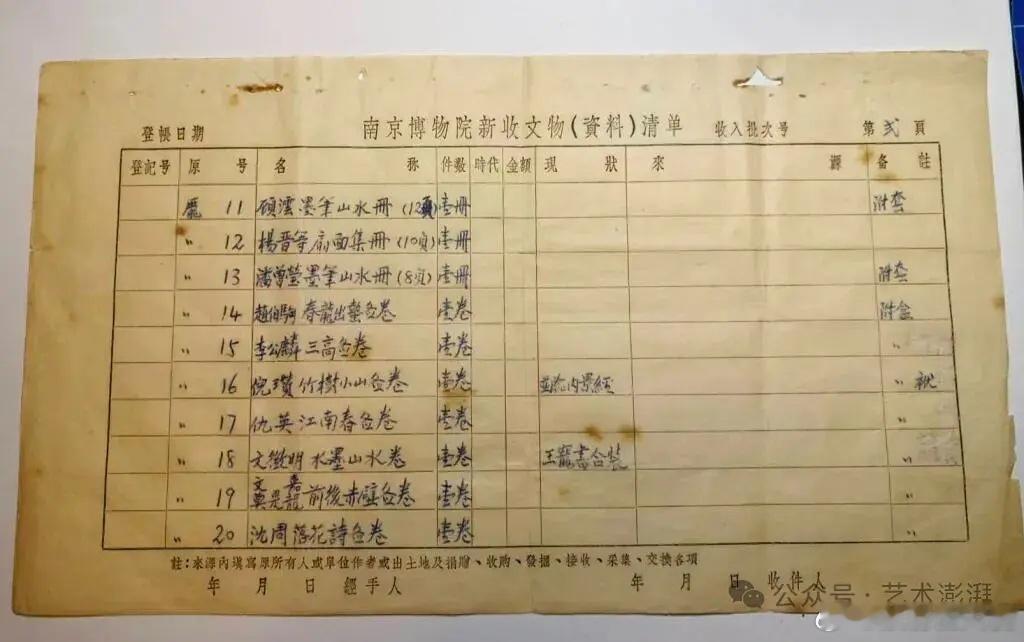 南京博物院新收文物(資料)清单
登帳日期 收入批次号 第弍頁
登記号 原号 名称 件数 時代 金額 現狀 來源 备註
龐 11 顾澐墨笔山水冊 (12頁) 壹冊 附套
〃 12 楊晋等扇面集冊 (10頁) 壹冊
〃 13 潘曾瑩墨笔山水冊 (8頁) 壹冊 附套
〃 14 趙伯駒 春龍出蟄啚卷 壹卷 附盒
〃 15 李公麟 三高啚卷 壹卷 〃
〃 16 倪瓚 竹樹小山啚卷 壹卷 內景經 〃 袱
〃 17 仇英 江南春啚卷 壹卷 〃
〃 18 文徵明 水墨山水卷 壹卷 王寵書合裝 〃
〃 19 文嘉 莫是龍 前後赤壁啚卷 壹卷 〃
〃 20 沈周 落花詩啚卷 壹卷 〃
註:來源內填寫原所有人或單位作者或出土地及捐贈、收购、發掘、接收、采集、交換各項
年 月 日 經手人 年 月 日 收件人
公众号·艺术澎湃